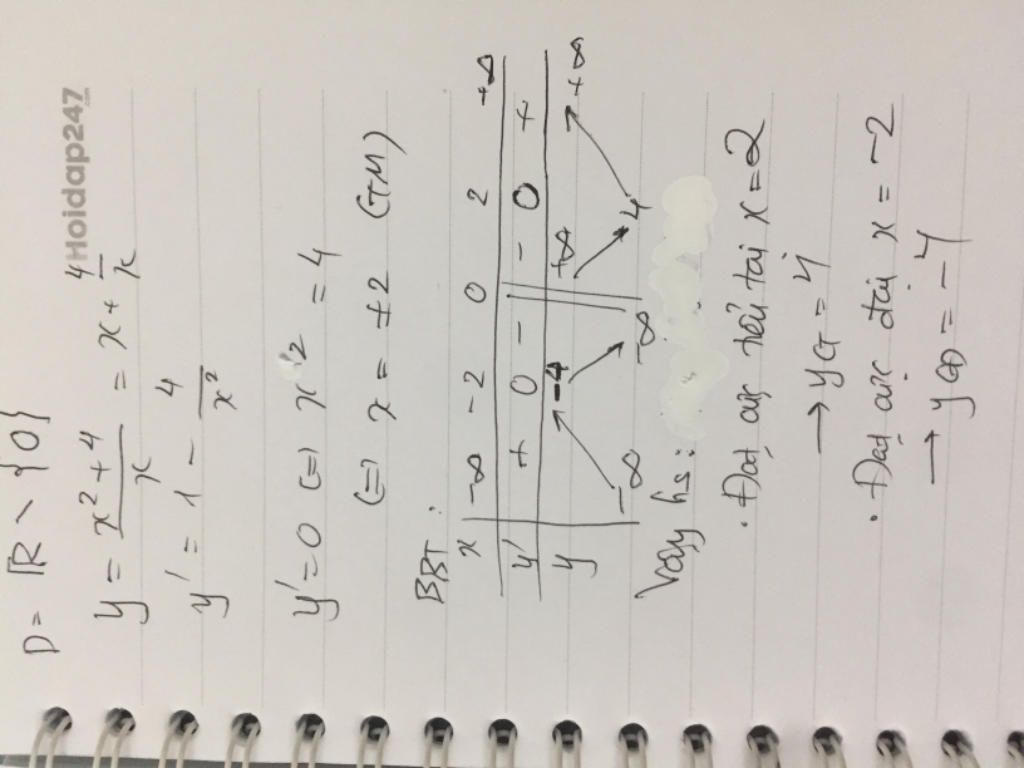 Hoidap247.com
D = ℝ \ {0}
y = (x² + 4)/x = x + 4/x
y' = 1 - 4/x²
y' = 0 (=) x² = 4
(=) x = ±2 (TM)
BBT:
x -∞ -2 0 2 +∞
y' + 0 - - 0 +
y -∞ -4 -∞ +∞ 4 +∞
Vậy hs:
· Đạt cực tiểu tại x = 2
→ y CT = 4
· Đạt cực đại x = -2
→ y CĐ = -4